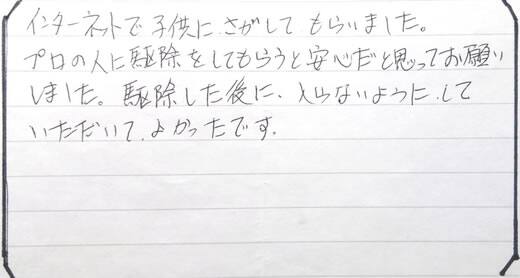 インターネットで子供にさがしてもらいました。
プロの人に駆除をしてもらうと安心だと思ってお願い
しました。駆除した後に、入らないように、して
いただいて、よかったです。